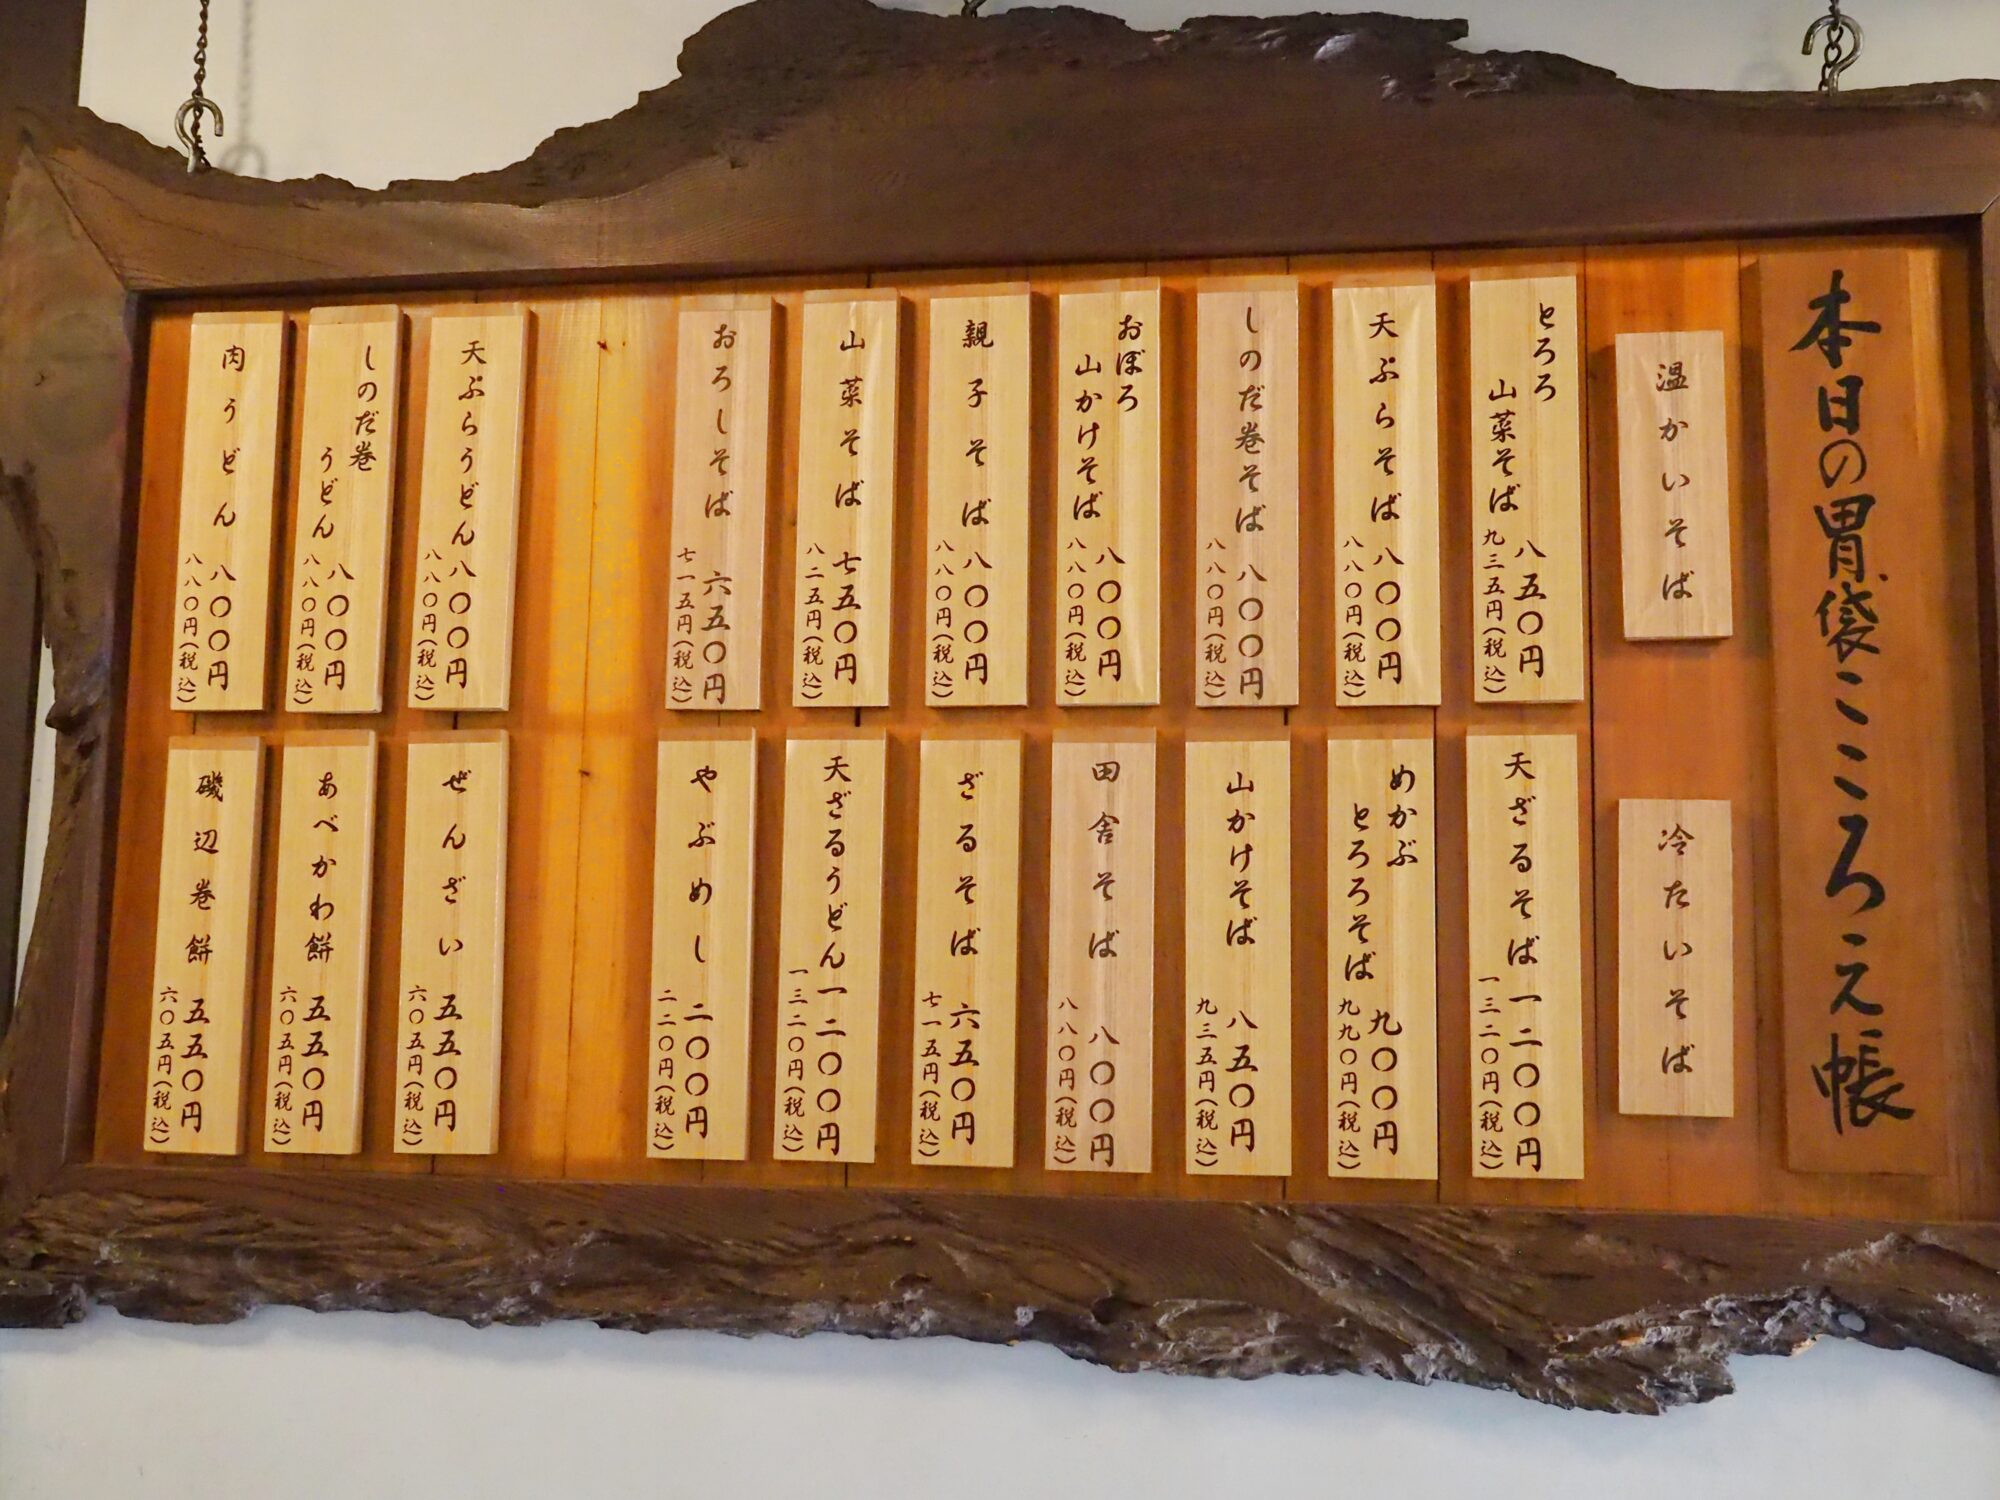 本日の胃袋こころえ帳
温かいそば
とろろ
山菜そば 八五〇円
九三五円(税込)
天ぷらそば 八〇〇円
八八〇円(税込)
しのだ巻そば 八〇〇円
八八〇円(税込)
おぼろ
山かけそば 八〇〇円
八八〇円(税込)
親子そば 八〇〇円
八八〇円(税込)
山菜そば 七五〇円
八二五円(税込)
おろしそば 六五〇円
七一五円(税込)
天ぷらうどん 八〇〇円
八八〇円(税込)
しのだ巻
うどん 八〇〇円
八八〇円(税込)
肉うどん 八〇〇円
八八〇円(税込)
冷たいそば
天ざるそば 一二〇〇円
一三二〇円(税込)
めかぶ
とろろそば 九〇〇円
九九〇円(税込)
山かけそば 八五〇円
九三五円(税込)
田舎そば 八〇〇円
八八〇円(税込)
ざるそば 六五〇円
七一五円(税込)
天ざるうどん 一二〇〇円
一三二〇円(税込)
やぶめし 二〇〇円
二二〇円(税込)
ぜんざい 五五〇円
六〇五円(税込)
あべかわ餅 五五〇円
六〇五円(税込)
磯辺巻餅 五五〇円
六〇五円(税込)